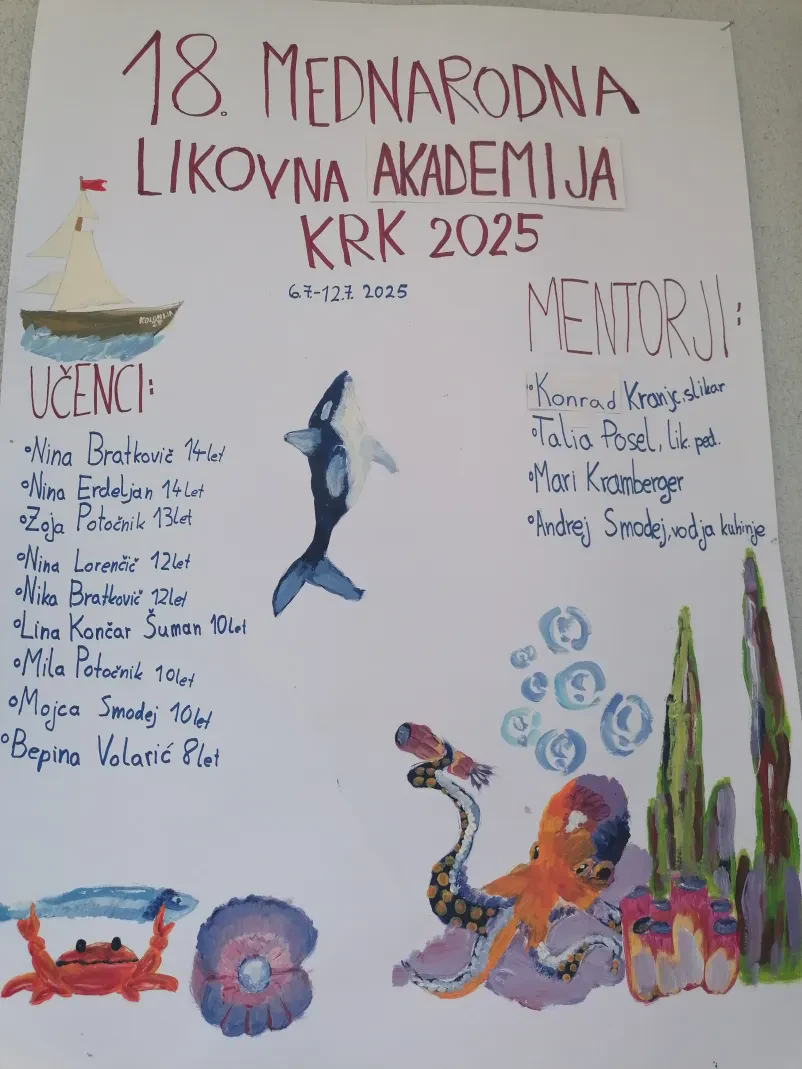 18. MEDNARODNA
LIKOVNA AKADEMIJA
KRK 2025
6.7.-12.7. 2025
UČENCI:
Nina Bratkovič 14let
Nina Erdeljan 14let
Zoja Potočnik 13let
Nina Lorenčič 12let
Nika Bratkovič 12let
Lina Končar Šuman 10let
Mila Potočnik 10let
Mojca Smodej 10let
Bepina Volarić 8let
MENTORJI:
Konrad Kranjc, slikar
Talia Posel, lik. ped.
Mari Kramberger
Andrej Smodej, vodja kuhinje